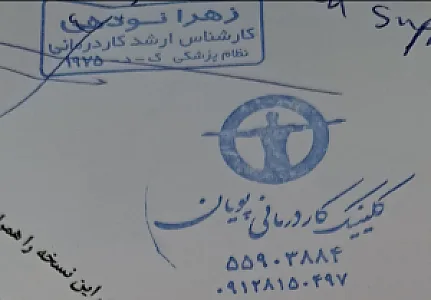 زهرا
کارشناس ارشد کاردرمانی
نظام پزشکی ک-د-۱۹۷۵
کلینیک کاردرمانی پویان
۵۵۹۰۳۸۸۴
۰۹۱۲۸۱۵۰۴۹۷
این نسخه را همراه